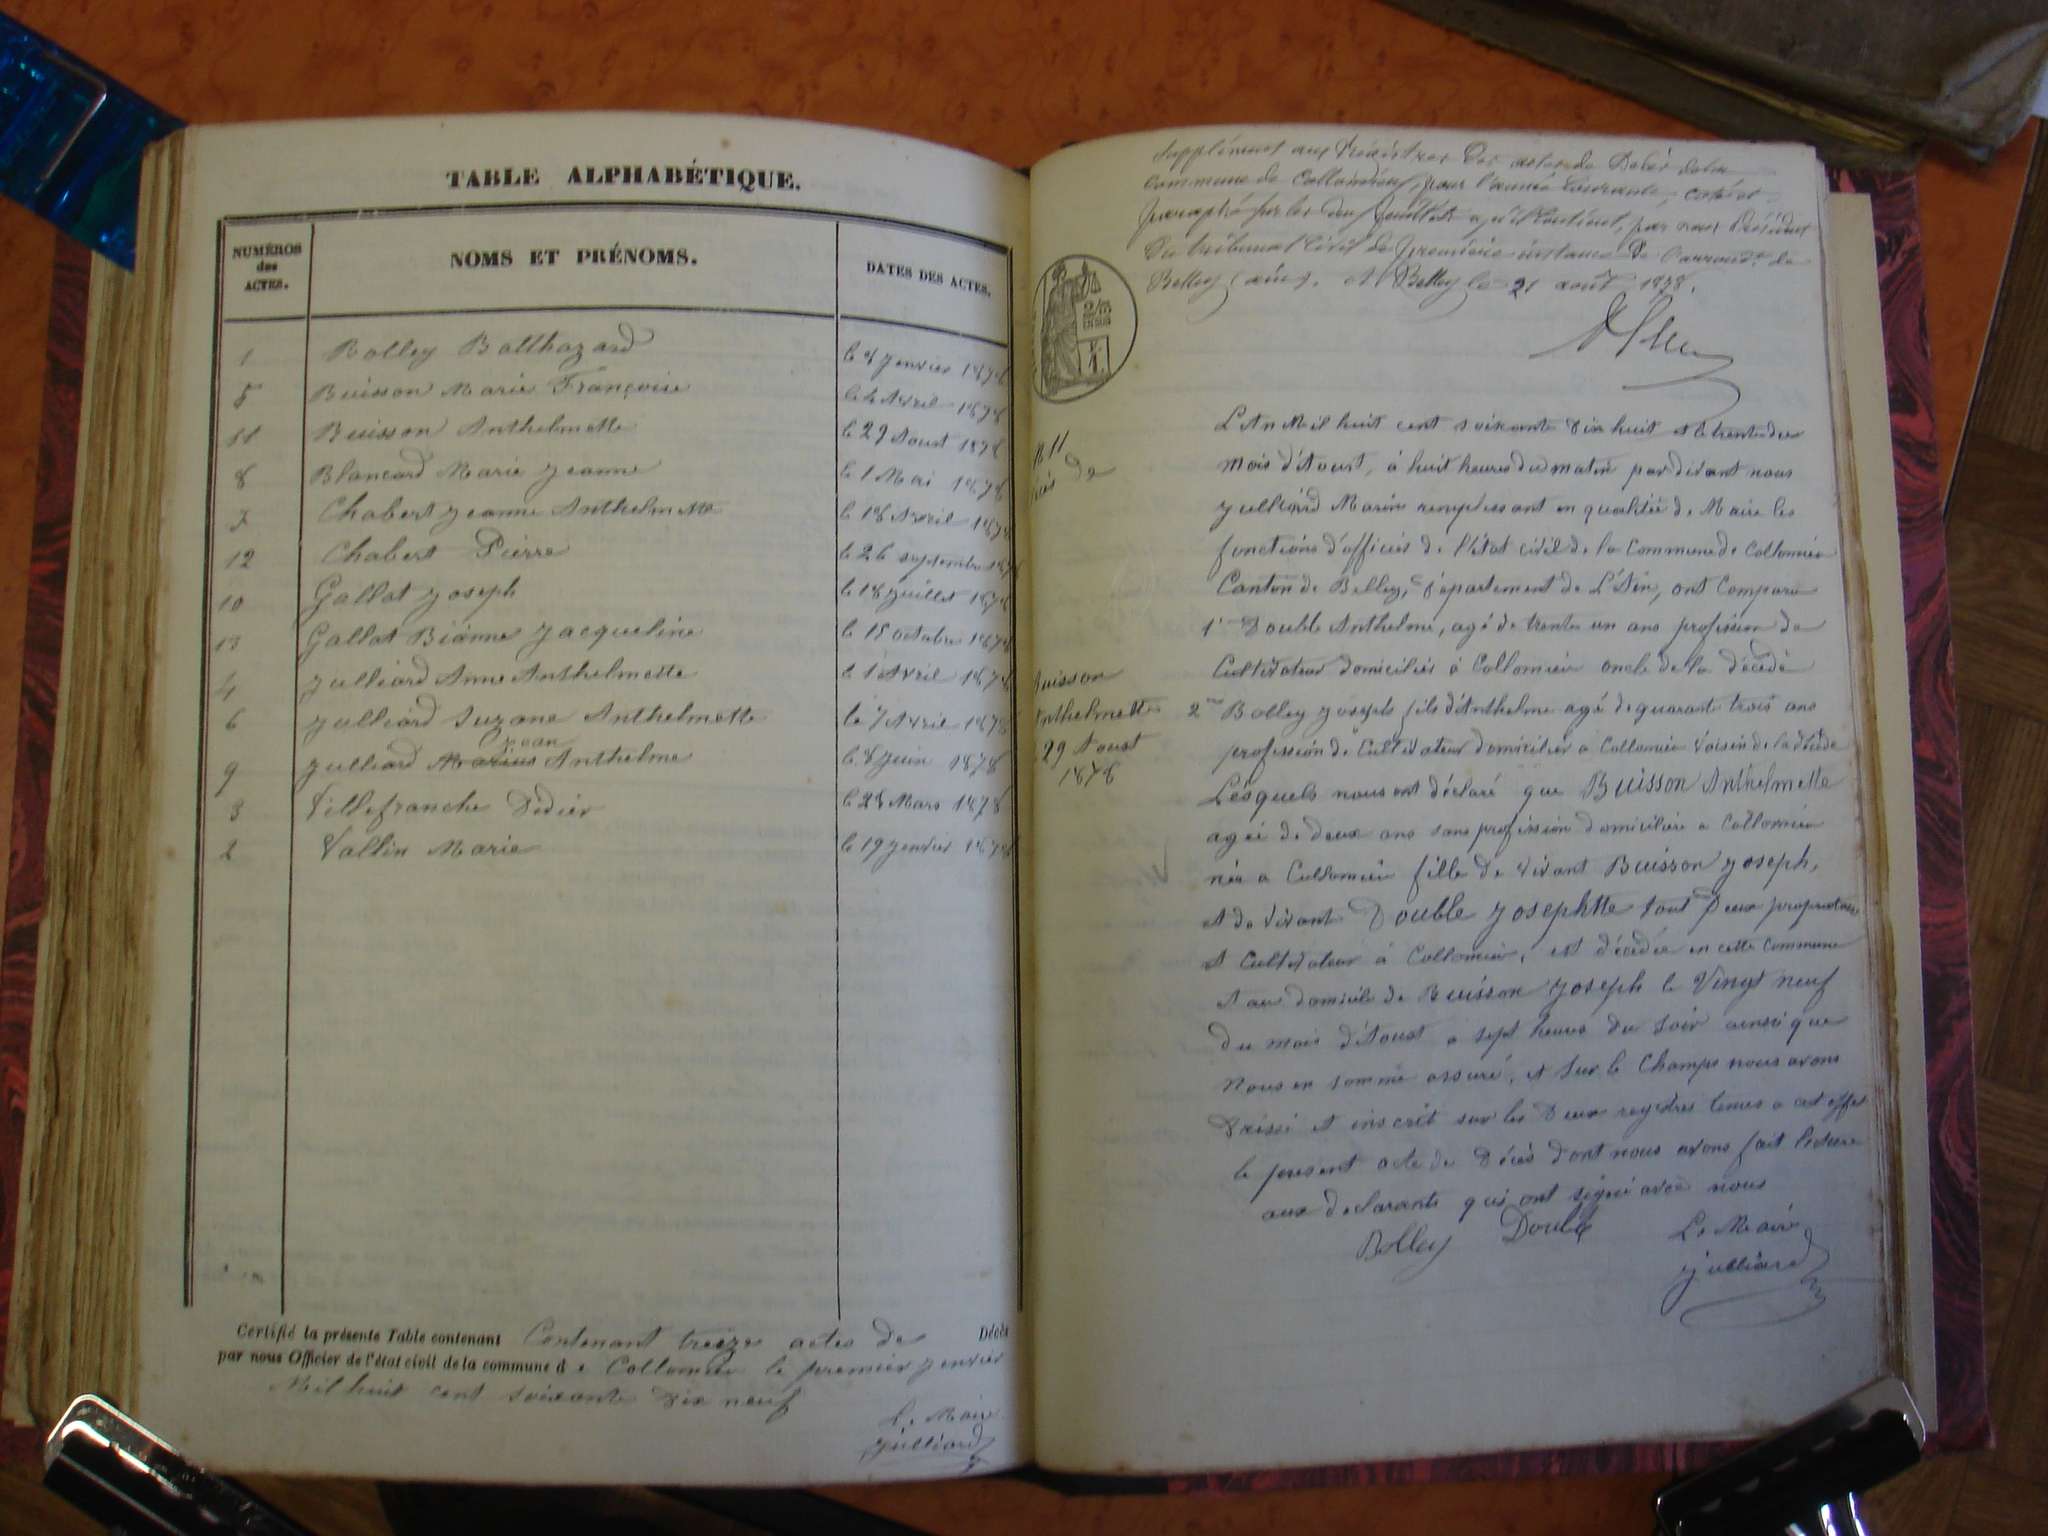 TABLE ALPHABÉTIQUE.
NUMÉROS des ACTES.
NOMS ET PRÉNOMS.
DATES DES ACTES.
1 Bolley Balthazard le 8 Janvier 1878
5 Buisson Marie Françoise le 4 Avril 1878
11 Buisson Anthelmette le 29 Aoust 1878
8 Blancard Marie Jeanne le 1 Mai 1878
7 Chabert Jeanne Anthelmette le 18 Avril 1878
12 Chabert Pierre le 26 septembre 1878
10 Gallat Joseph le 18 Juillet 1878
13 Gallat Bianne Jacqueline le 15 octobre 1878
4 Julliard Anne Anthelmette le 1 Avril 1878
6 Julliard Suzane Anthelmette le 7 Avril 1878
Jean
9 Julliard Marius Anthelme le 8 Juin 1878
3 Villefranche Didier le 28 Mars 1878
2 Vallin Marie le 19 Janvier 1878
Certifié la présente Table contenant Contenant treize actes de Décès
par nous Officier de l'état civil de la commune de Collomieu le premier Janvier
Mil huit cent soixante dix neuf
Le Maire
Julliard
Supplément aux Registres des actes de Décès de la
Commune de Collomieu, pour l'année courante, coté et
paraphé sur les deux feuillets qu'il contient, par nous Président
du tribunal civil de première instance de l'arrond.t de
Belley (ain). A Belley le 21 août 1878.
2/5
L'An Mil huit cent soixante dix huit et le trente du
mois d'Aoust, à huit heures du matin par divant nous
Julliard Marin remplissant en qualitée de Maire les
fonctions d'officiés de l'état civil de la Commune de Collomieu
Canton de Belley, département de L'Ain, ont Comparu
1° Double Anthelme, agé de trente un ans profession de
Cultivateur domicilies à Collomieu oncle de la décédé
2me Bolley Joseph fils d'Anthelme agé de quarant trois ans
profession de Cultivateur domicilier a Collomieu voisin de la décédé
Lesquels nous ont déclaré que Buisson Anthelmette
agée de deux ans sans profession domicilière a Collomieu
née a Collomieu fille de vivant Buisson Joseph,
et de vivante Double Josephtte tout deux propriétaire
et Cultivateur à Collomieu, est décédée en cette Commune
et au domicile de Buisson Joseph le Vingt neuf
du mois d'Aoust a sept heures du soir ainsi que
Nous en somme assuré, et sur le Champs nous avons
Drissé et inscrit sur les Deux registres tenus a cet effet
le present acte de Décès dont nous avons fait lecture
aux declarants qui ont signé avec nous
Bolley Double Le Maire
Julliard
11
de
Buisson
Anthelmette
29 Aoust
1878